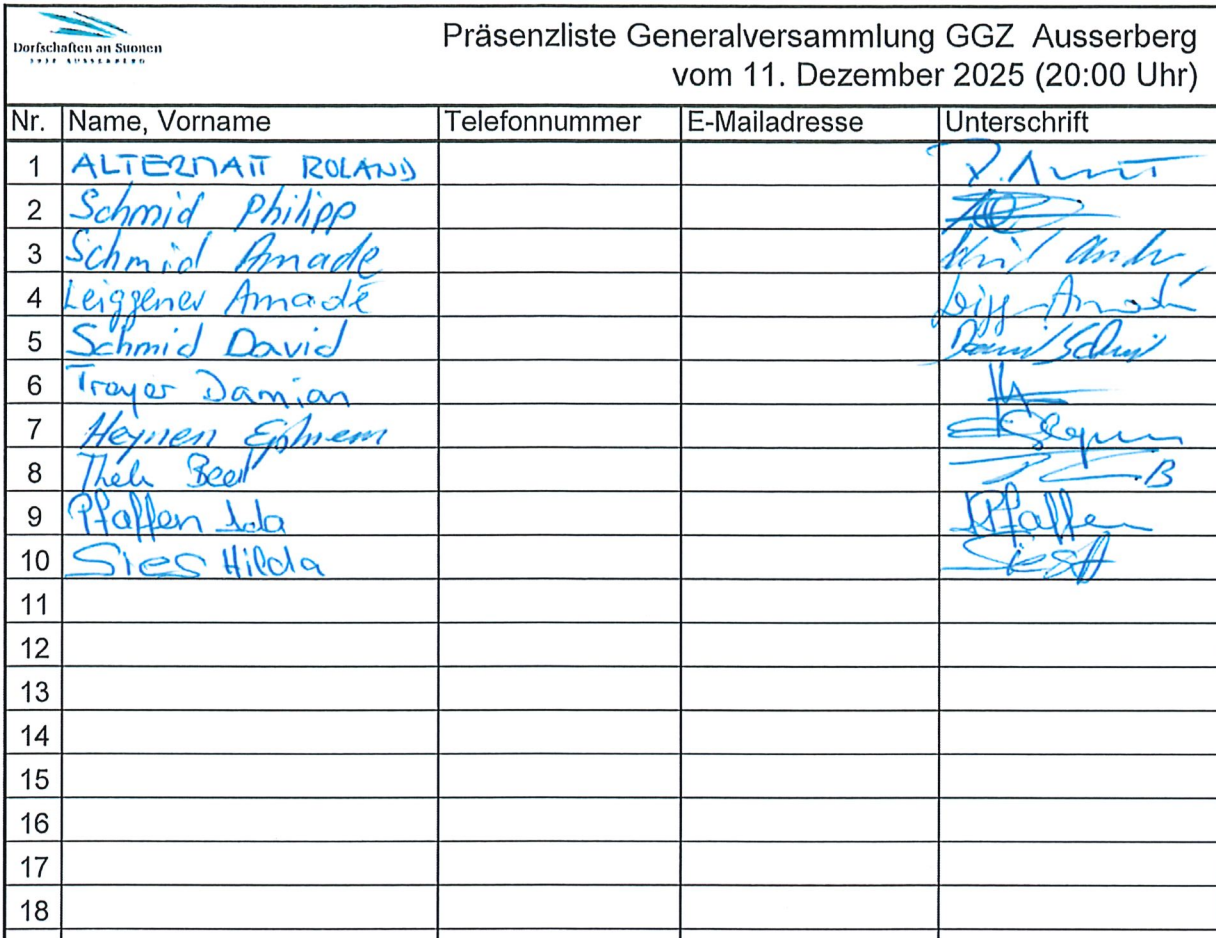 Dorfschaften an Suonen
3938 AUSSERBERG
Präsenzliste Generalversammlung GGZ Ausserberg
vom 11. Dezember 2025 (20:00 Uhr)
Nr. Name, Vorname Telefonnummer E-Mailadresse Unterschrift
1 ALTERMATT ROLAND
2 Schmid Philipp
3 Schmid Amadé
4 Leiggener Amadé
5 Schmid David
6 Troger Damian
7 Heynen Ephrem
8 Beat
9 Pfaffen Ida Pfaffen
10 Sies Hilda Sies H
11
12
13
14
15
16
17
18